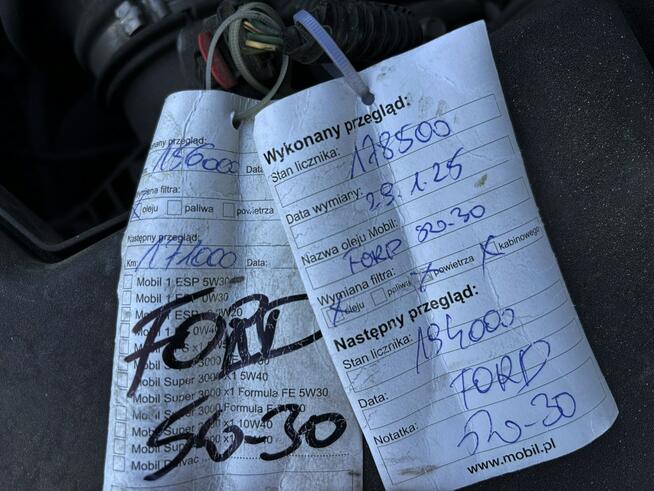 nany przegląd:
156000 Data
iana filtra:
X oleju paliwa powietrza
Następny przegląd:
Km: 171000 Data:
Mobil 1 ESP 5W30
Mobil 1 ESP 0W30
Mobil 1
Mobil 1 0W4
FORD
Mobil Super 3000 X1 5W40
Mobil Super 3000 x1 Formula FE 5W30
Mobil Super 3000 Formula F
Mobil Super x1 10W40
Mobil Super
Mobil Delvac
5W-30
Wykonany przegląd:
Stan licznika: 178500
Data wymiany: 29.1.25
Nazwa oleju Mobil: FORD 5W-30
Wymiana filtra:
X oleju paliwa X powietrza X kabinowego
Następny przegląd:
Stan licznika: 194000
Data:
FORD
Notatka: 5W-30
www.mobil.pl